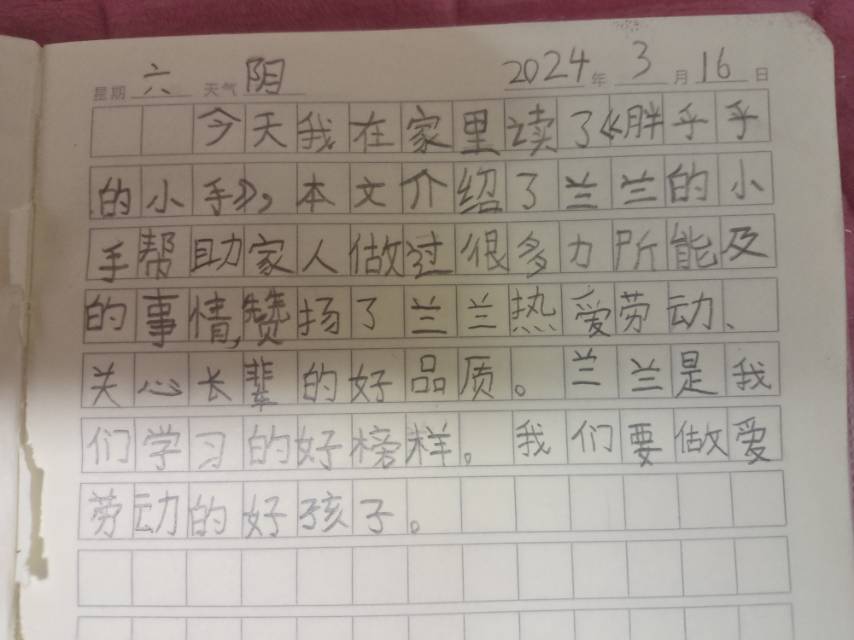 星期 六 天气 阴 2024 年 3 月 16 日
今天我在家里读了《胖乎乎
的小手》，本文介绍了兰兰的小
手帮助家人做过很多力所能及
的事情，赞扬了兰兰热爱劳动、
关心长辈的好品质。兰兰是我
们学习的好榜样。我们要做爱
劳动的好孩子。